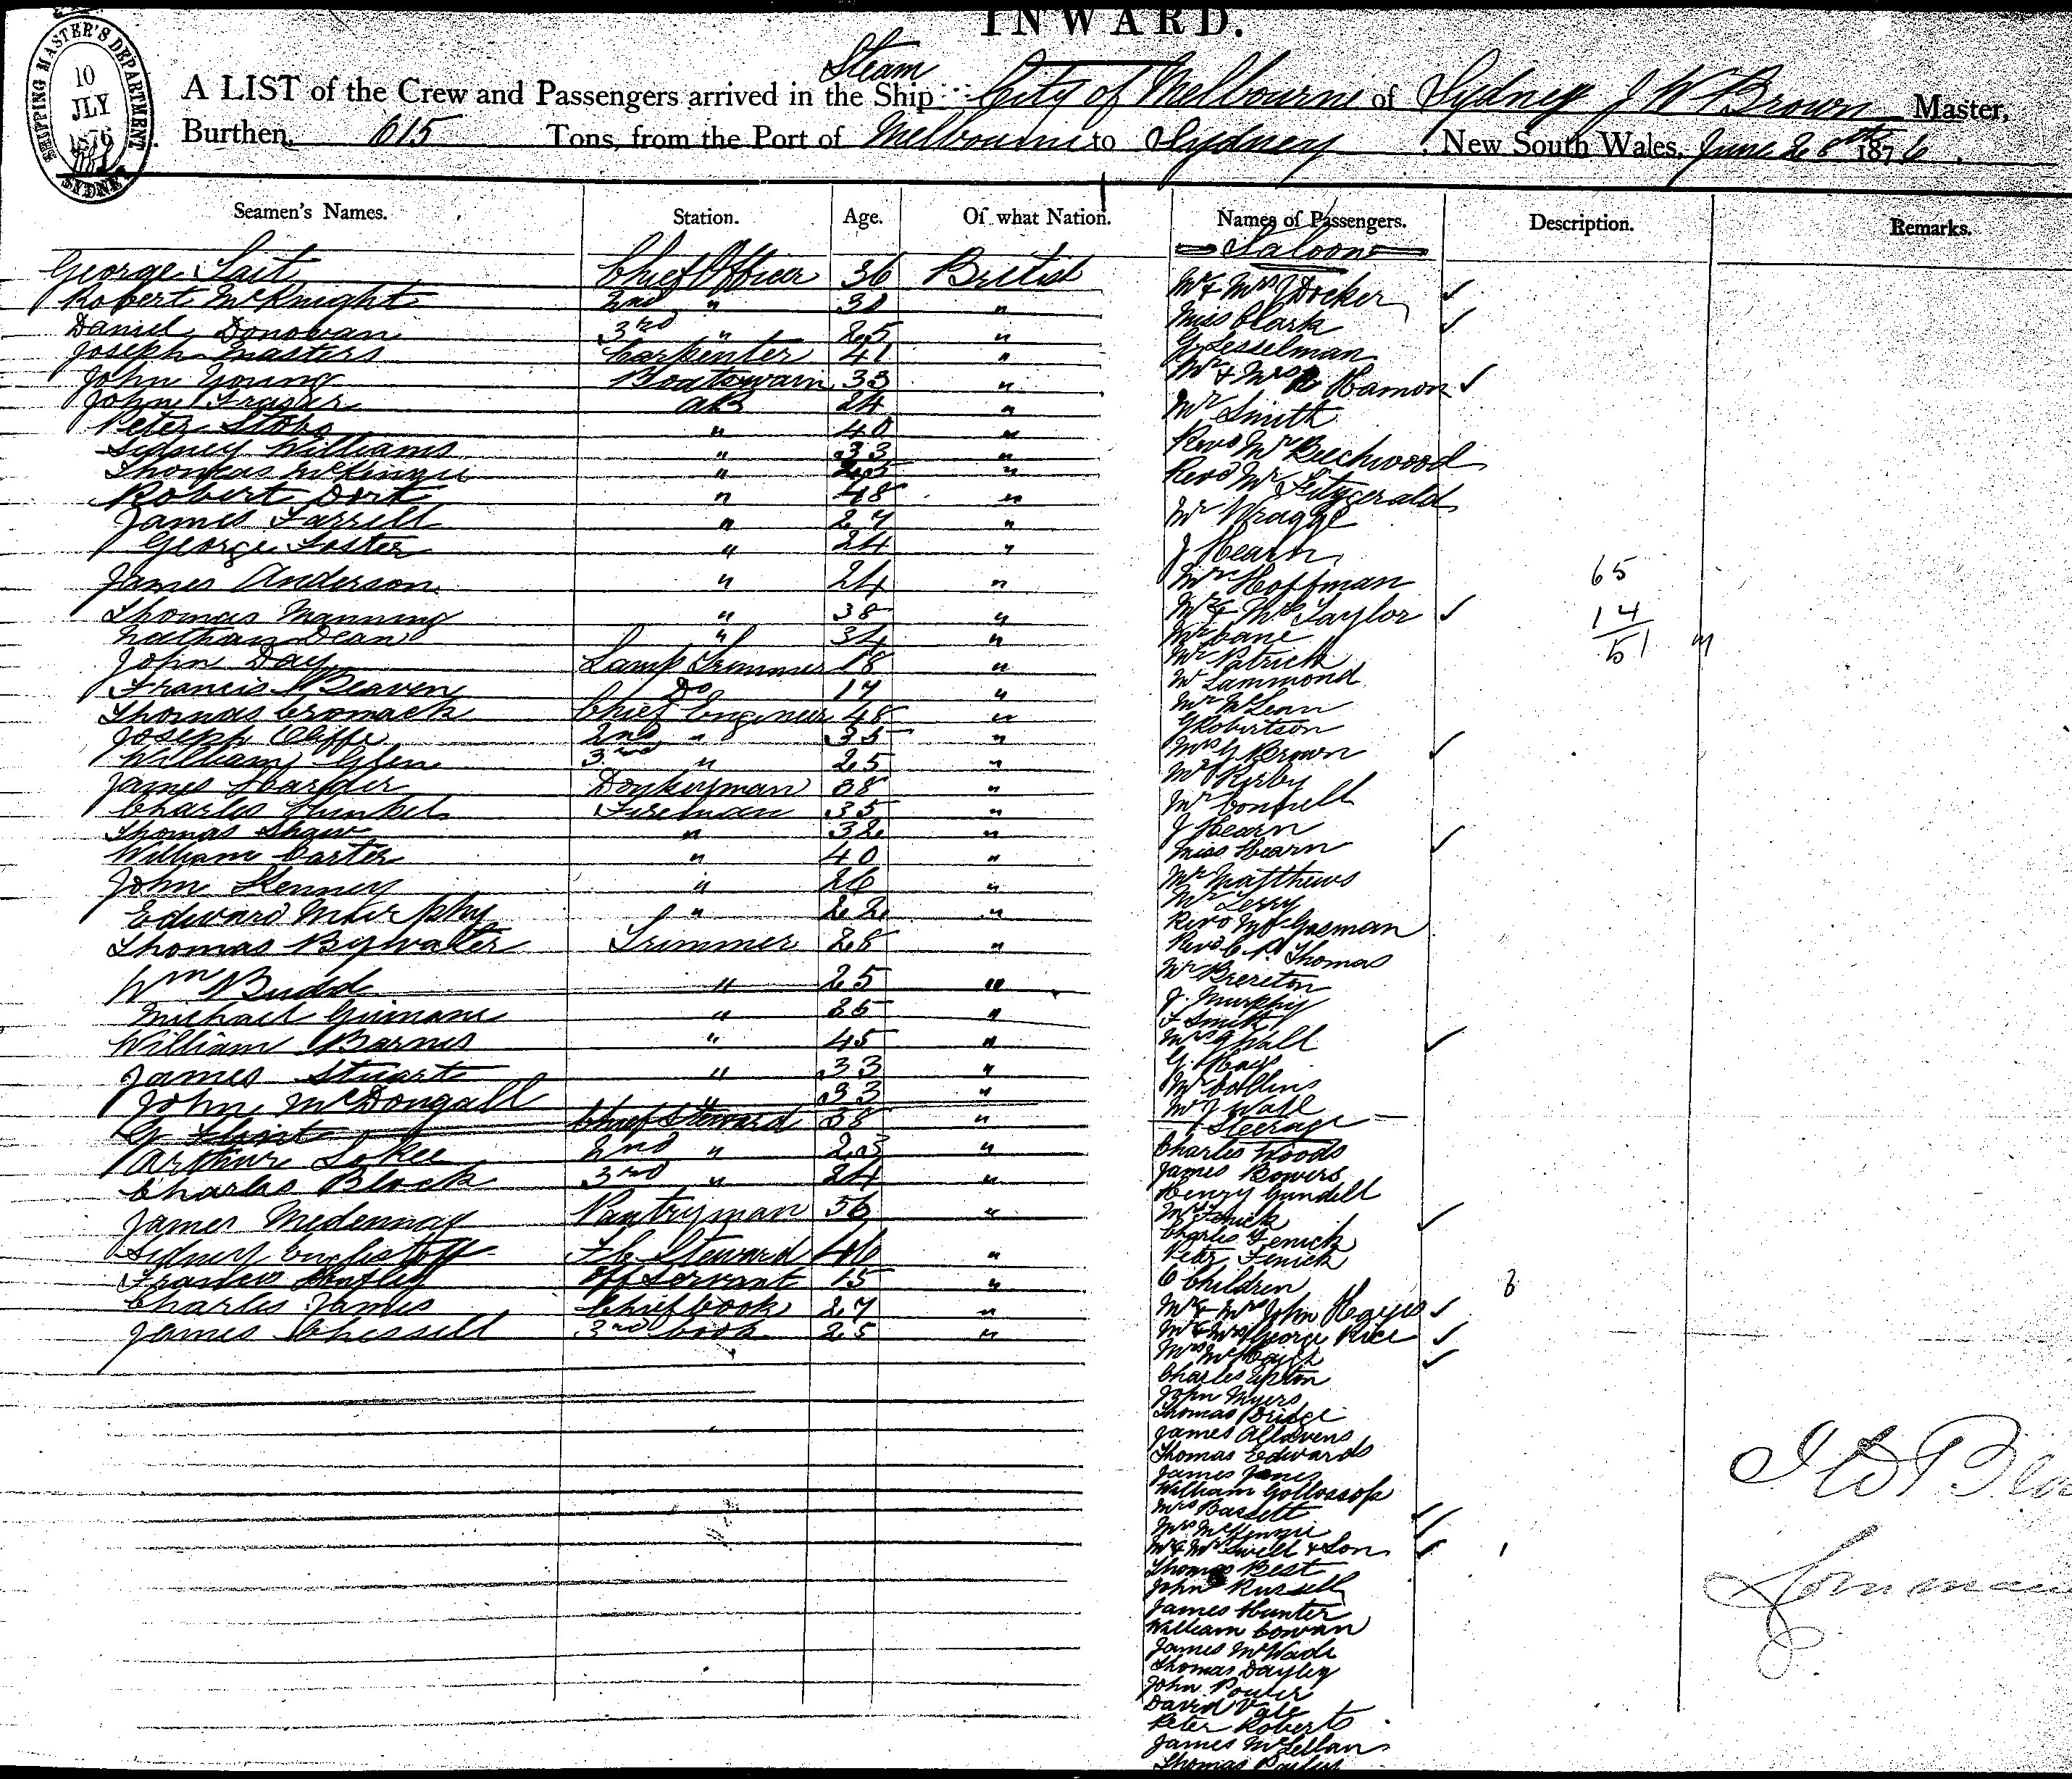 INWARD.
SHIPPING MASTER'S DEPARTMENT
10
JLY
1876
SYDNEY
Steam
A LIST of the Crew and Passengers arrived in the Ship City of Melbourne of Sydney J W Brown Master,
Burthen, 615 Tons, from the Port of Melbourne to Sydney New South Wales, June 28th 1876
Seamen's Names. Station. Age. Of what Nation. Names of Passengers. Description. Remarks.
Saloon
George Chief Officer 36 British
Robert McKnight 2nd " "
Daniel Donovan 3rd " 25 "
Joseph Masters Carpenter 41 "
John Young Boatswain 33 "
John Frazer AB 24 "
Peter " 40 "
Sidney Williams " 33 "
Thomas " 25 "
Robert " 48 "
James Farrell " 27 "
George Foster " 24 "
James Anderson " 24 "
Thomas Manning " 38 "
Nathan Dean " 34 "
John Day Lamp Trimmer 18 "
Francis Beaven Do 17 "
Thomas Cromack Chief Engineer 48 "
Joseph Cliffe 2nd " 35 "
William Glen 3rd " 25 "
James Donkeyman 38 "
Charles Fireman 35 "
Thomas Shaw " 32 "
William Carter " 40 "
John Kenney " 26 "
Edward Murphy " 22 "
Thomas Bywater Trimmer 28 "
Wm Budd " 25 "
Michael " 35 "
William Barnes " 45 "
James Stuart " 33 "
John McDougall " 33 "
G Flint Chief Steward 38 "
Arthur 2nd " 23 "
Charles Block 3rd " 24 "
James Pantryman 56 "
Sidney Steward "
Francis Servant 15 "
Charles James Chief Cook 27 "
James Chissell 3rd Cook 25 "
Mr & Mrs Docker
Miss Clark
G Lesselman
Mr & Mrs Hamon
Mr Smith
Revd Mr Beechwood
Revd Mr Fitzgerald
Mr Wragge
J Hearn
Mr Hoffman
Mr & Mrs Taylor
Mr Cane
Mr Patrick
Mr Lammond
Mr McLean
G Robertson
Mrs G Brown
Mr Kirby
Mr Connell
J Hearn
Miss Hearn
Mr Matthews
Mr Terry
Revd Mr Gasman
Revd C P Thomas
Mr Brereton
J. Murphy
F Smith
Mrs J Wall
G. Hays
Mr Collins
Mr J Wall
Steerage
Charles Woods
James Bowers
Henry Gundell
Mrs Fenick
Charles Fenick
Peter Fenick
6 Children
Mr & Mrs John Hayes
Mr & Mrs George Rice
Mrs
Charles Upton
John Myers
Thomas Bridge
James
Thomas Edwards
James Jones
William
Mrs Bassett
Mrs McKenzie
Mr & Mrs Swell & Son
Thomas Best
John Russell
James Hunter
William Cowan
James McWade
Thomas Dayley
John Power
David Vale
Peter Roberts
James McLellan
Thomas
65
14
51